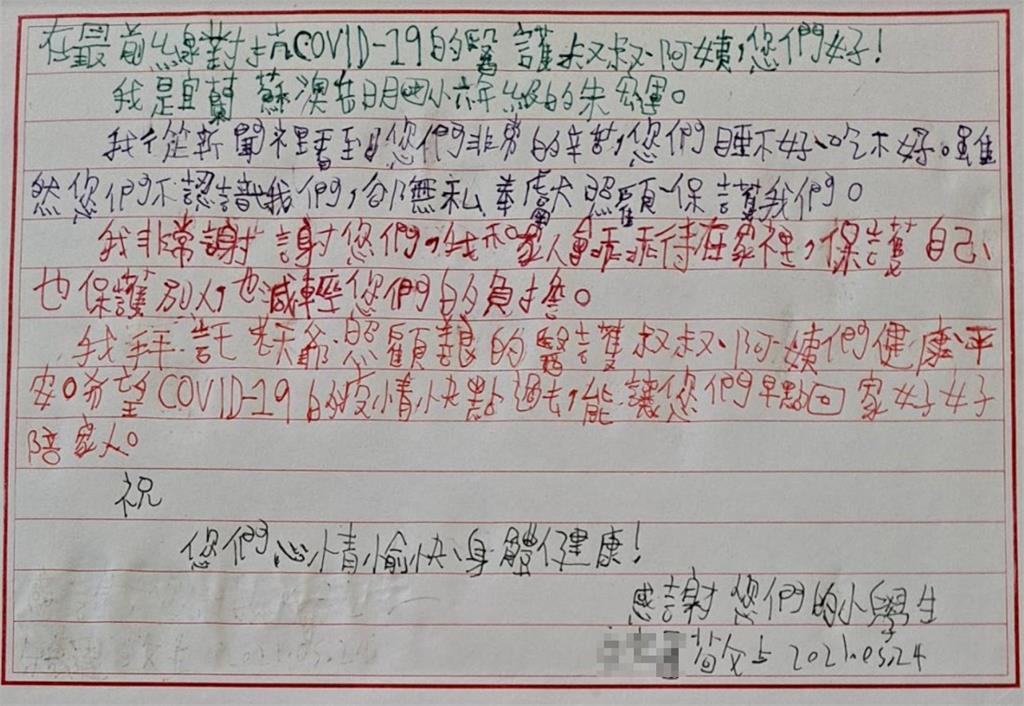 在最前線對抗COVID-19的醫護叔叔、阿姨,您們好!
我是宜蘭蘇澳岳明國小六年級的朱
我從新聞裡看到您們非常的辛苦,您們睡不好、吃不好。雖
然您們不認識我們,卻無私奉獻照顧、保護我們。
我非常謝謝您們,我和家人會乖乖待在家裡,保護自己、
也保護別人,也減輕您們的負擔。
我拜託天爺照顧的醫護叔叔、阿姨們健康、平
安。希望COVID-19的疫情快點過去,能讓您們早點回家好好
陪家人。
祝
您們心情愉快、身體健康!
感謝您們的小學生
敬上 2021.05.24